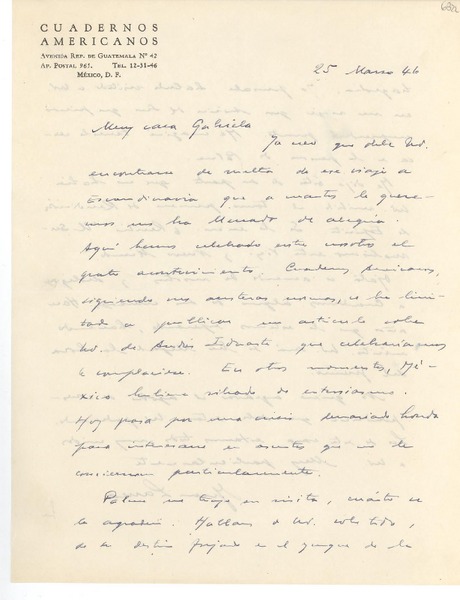 CUADERNOS
AMERICANOS
Avenida Rep. de Guatemala Nº 42
Ap. Postal 965. Tel. 12-31-46
México, D. F.
25 Marzo 46
Muy cara Gabriela
Ya creo que debe Ud.
encontrarse de vuelta de ese viaje a
Escandinavia que a cuantos la quere-
mos nos ha llenado de alegría.
Aquí hemos celebrado entre nosotros el
grato acontecimiento. Cuadernos Americanos,
siguiendo sus austeras normas, se ha limi-
tado a publicar un artículo sobre
Ud. de Andrés Iduarte que celebraríamos
le complaciese. En otros momentos, Mé-
xico hubiera vibrado de entusiasmo.
Hoy pasa por una crisis demasiado honda
para interesarse en asuntos que no le
conciernan particularmente.
Palma me trajo en visita, cuánto se
lo agradecí. Hablamos de Ud. sobre todo,
de su destino forjado en el yunque de la